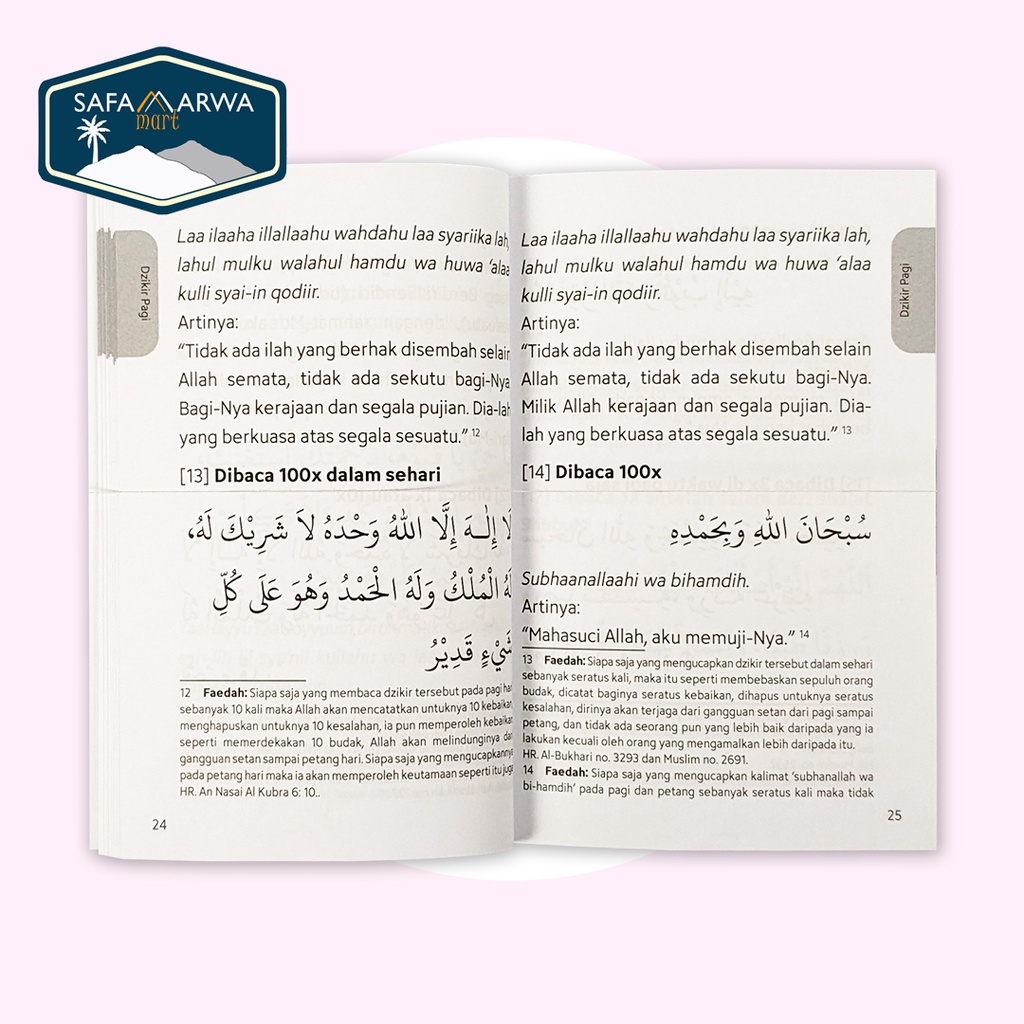 SAFA MARWA
mart
Dzikir Pagi
Laa ilaaha illallaahu wahdahu laa syariika lah,
lahul mulku walahul hamdu wa huwa ‘alaa
kulli syai-in qodiir.
Artinya:
“Tidak ada ilah yang berhak disembah selain
Allah semata, tidak ada sekutu bagi-Nya
Bagi-Nya kerajaan dan segala pujian. Dia-lah
yang berkuasa atas segala sesuatu.” 12
[13] Dibaca 100x dalam sehari
لَا إِلٰـهَ إِلَّا اللهُ وَحْدَهُ لاَ شَرِيْكَ لَهُ،
لَهُ الْمُلْكُ وَلَهُ الْحَمْدُ وَهُوَ عَلَى كُلِّ
شَيْءٍ قَدِيْرُ
12 Faedah: Siapa saja yang membaca dzikir tersebut pada pagi hari
sebanyak 10 kali maka Allah akan mencatatkan untuknya 10 kebaikan
menghapuskan untuknya 10 kesalahan, ia pun memperoleh kebaikan
seperti memerdekakan 10 budak, Allah akan melindunginya dari
gangguan setan sampai petang hari. Siapa saja yang mengucapkannya
pada petang hari maka ia akan memperoleh keutamaan seperti itu juga
HR. An Nasai Al Kubra 6: 10..
24
Laa ilaaha illallaahu wahdahu laa syariika lah,
lahul mulku walahul hamdu wa huwa ‘alaa
kulli syai-in qodiir.
Artinya:
“Tidak ada ilah yang berhak disembah selain
Allah semata, tidak ada sekutu bagi-Nya.
Milik Allah kerajaan dan segala pujian. Dia-
lah yang berkuasa atas segala sesuatu.” 13
[14] Dibaca 100x
سُبْحَانَ اللهِ وَبِحَمْدِهِ
Subhaanallaahi wa bihamdih.
Artinya:
“Mahasuci Allah, aku memuji-Nya.” 14
13 Faedah: Siapa saja yang mengucapkan dzikir tersebut dalam sehari
sebanyak seratus kali, maka itu seperti membebaskan sepuluh orang
budak, dicatat baginya seratus kebaikan, dihapus untuknya seratus
kesalahan, dirinya akan terjaga dari gangguan setan dari pagi sampai
petang, dan tidak ada seorang pun yang lebih baik daripada yang ia
lakukan kecuali oleh orang yang mengamalkan lebih daripada itu.
HR. Al-Bukhari no. 3293 dan Muslim no. 2691.
14 Faedah: Siapa saja yang mengucapkan kalimat ‘subhanallah wa
bi-hamdih’ pada pagi dan petang sebanyak seratus kali maka tidak
25
Dzikir Pagi